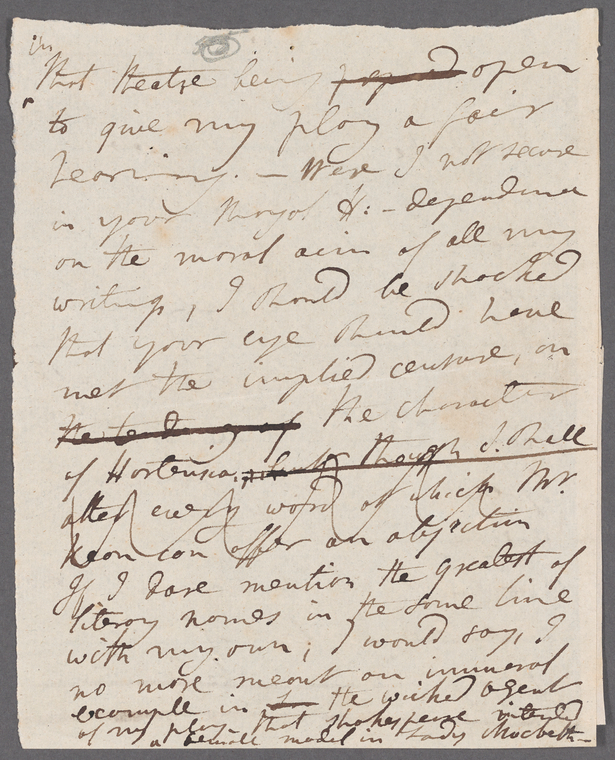 in
that theatre being open
to give my play a fair
hearing. – Were I not secure
in your Royal H: – dependence
on the moral aim of all my
writings, I should be shocked
that your eye should have
met the implied censure, on
the tendency of the character
of Hortensia, though I shall
alter every word at which Mr.
Kean can offer an objection
If I dare mention the greatest of
literary names in the same line
with my own, I would say, I
no more meant an immoral
example in the wicked agent
of my play, that Shakespeare intended
a female model in Lady Macbeth –